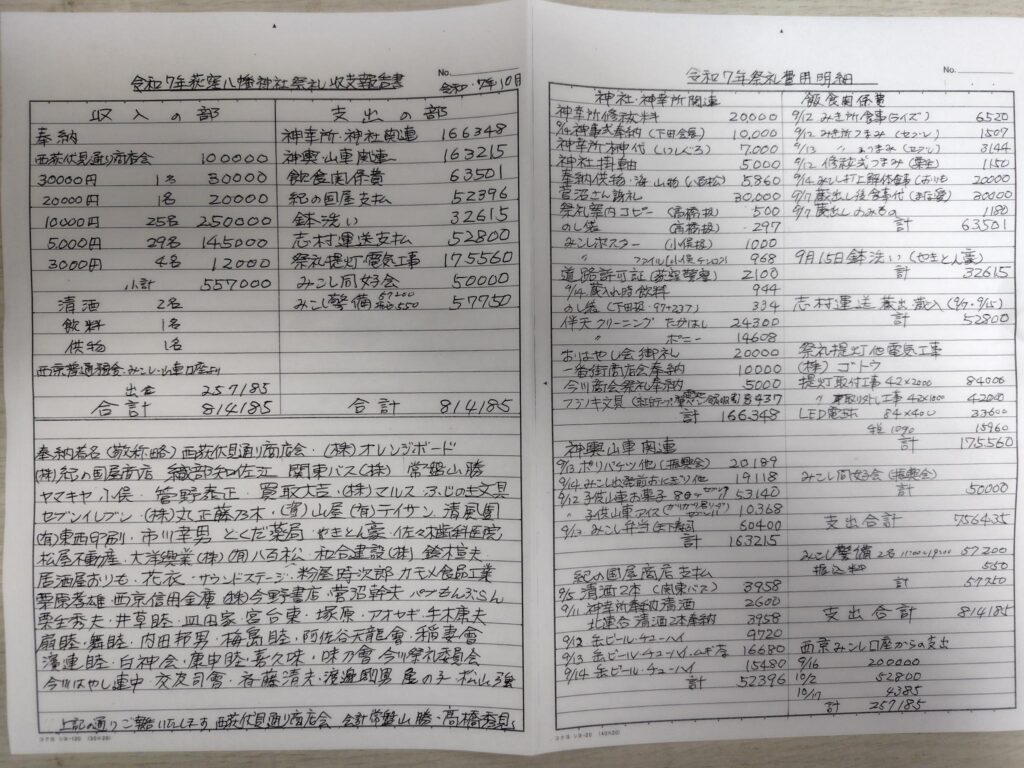 No.
令和7年荻窪八幡神社祭礼収支報告書
令和7年10月
収入の部
奉納
西荻伏見通り商店会 100000
30000円 1名 30000
20000円 1名 20000
10000円 25名 250000
5000円 29名 145000
3000円 4名 12000
小計 557000
清酒 2名
飲料 1名
供物 1名
西京普通預金、みこし・山車口座より
出金 257185
合計 814185
支出の部
神幸所・神社関連 166348
神輿山車関連 163215
飲食関係費 63501
紀の国屋支払 52396
鉢洗い 32615
志村運送支払 52800
祭礼提灯・電気工事 175560
みこし同好会 50000
みこし警備 57200 550 57750
合計 814185
奉納者名(敬称略) 西荻伏見通り商店会・(株)オレンジボード
(株)紀の国屋商店 織部和佐江 関東バス(株) 常盤山勝
ヤマキヤ小俣・菅野泰正・買取大吉・(株)マルス・ふじの木文具
セブンイレブン・(株)丸正藤乃木・(有)山屋(有)テイサン 清風園
(有)東西印刷・市川幸男 とくだ薬局 やきとん豪 佐々木歯科医院
松屋不動産・大洋興業(株)(有)八百松・和合建設(株)
居酒屋おりも・花衣・サウンドステージ・粉屋時次郎 カモメ食品工業
栗原孝雄 西京信用金庫 (株)今野書店・菅沼幹夫 パブもんぶらん
栗生秀夫・井草睦・皿田家・宮台東・塚原・アオヤギ・牛木康夫
扇睦・舞睦・内田邦男・梅島睦・阿佐谷天龍會・稲妻會
澤連睦・白神會・庚申睦・喜久味・味乃會 今川祭礼委員会
今川はやし連中・交友司會・斉藤清夫・渡邉剛 屋の子・松山
上記の通りご報告いたします 西荻伏見通り商店会 会計 常盤山勝・高橋秀
コクヨ シヨ-20 (20×20)
No.
令和7年祭礼費用明細
神社・神幸所関連
神幸所修祓料 20000
9/14神事式奉納(下田会長) 10,000
神幸所榊代(いしぐろ) 7,000
神社掛軸 5,000
奉納供物・海山物(八百松) 5,860
菅沼さん御礼 30,000
祭礼案内コピー(高橋扱) 500
のし袋(高橋扱) 297
みこしポスター(小俣扱) 1000
〃 ファイル 968
道路許可証(荻窪警察) 2100
9/14蔵入れ時飲料 944
のし袋(下田扱 97+237) 334
伴天クリーニング たかはし 24300
〃 ポニー 14608
おはやし会御礼 20000
一番街商店会奉納 10000
今川商会祭礼奉納 5000
フジノキ文具 8437
計 166,348
神輿山車関連
9/13 ポリバケツ他(振興会) 20189
9/14 みこし出発前おにぎり他 19118
9/12 子供山車お菓子 80ヶ 53140
〃 子供山車アイス 10,368
9/13 みこし弁当 60400
計 163215
紀の国屋商店支払
9/5 清酒2本(関東バス) 3958
9/11 神幸所奉納清酒 2600
北連合 清酒2本奉納 3958
9/12 缶ビール・チューハイ 9720
9/13 缶ビール・チューハイ・ムギ茶 16680
9/14 缶ビール・チューハイ 15480
計 52396
飲食関係費
9/12 みき所食事(ライズ) 6520
9/12 みき所つまみ(セブン) 1507
9/13 〃 〃つまみ(セブン) 3144
9/12 修祓式つまみ 1150
9/14 みこし打上解体食事(おりも) 20000
9/7 蔵出し後食事代 30000
9/7 蔵出しのみもの 1180
計 63501
9月15日 鉢洗い(やきとん豪)
計 32615
志村運送 蔵出 蔵入(9/7・9/15)
計 52800
祭礼提灯他電気工事
(株)ゴトウ
提灯取付工事 42×2000 84000
〃 取り外し工事 42×1000 42000
LED電球 84×400 33600
税 10% 15960
計 175560
みこし同好会(振興会)
計 50000
支出合計 756435
みこし警備 2名 11:00〜19:00 57200
振込料 550
計 57750
支出合計 814185
西京みこし口座からの支出
9/16 200000
10/2 52800
10/17 4385
計 257185
コクヨ シヨ-20 (20×20)